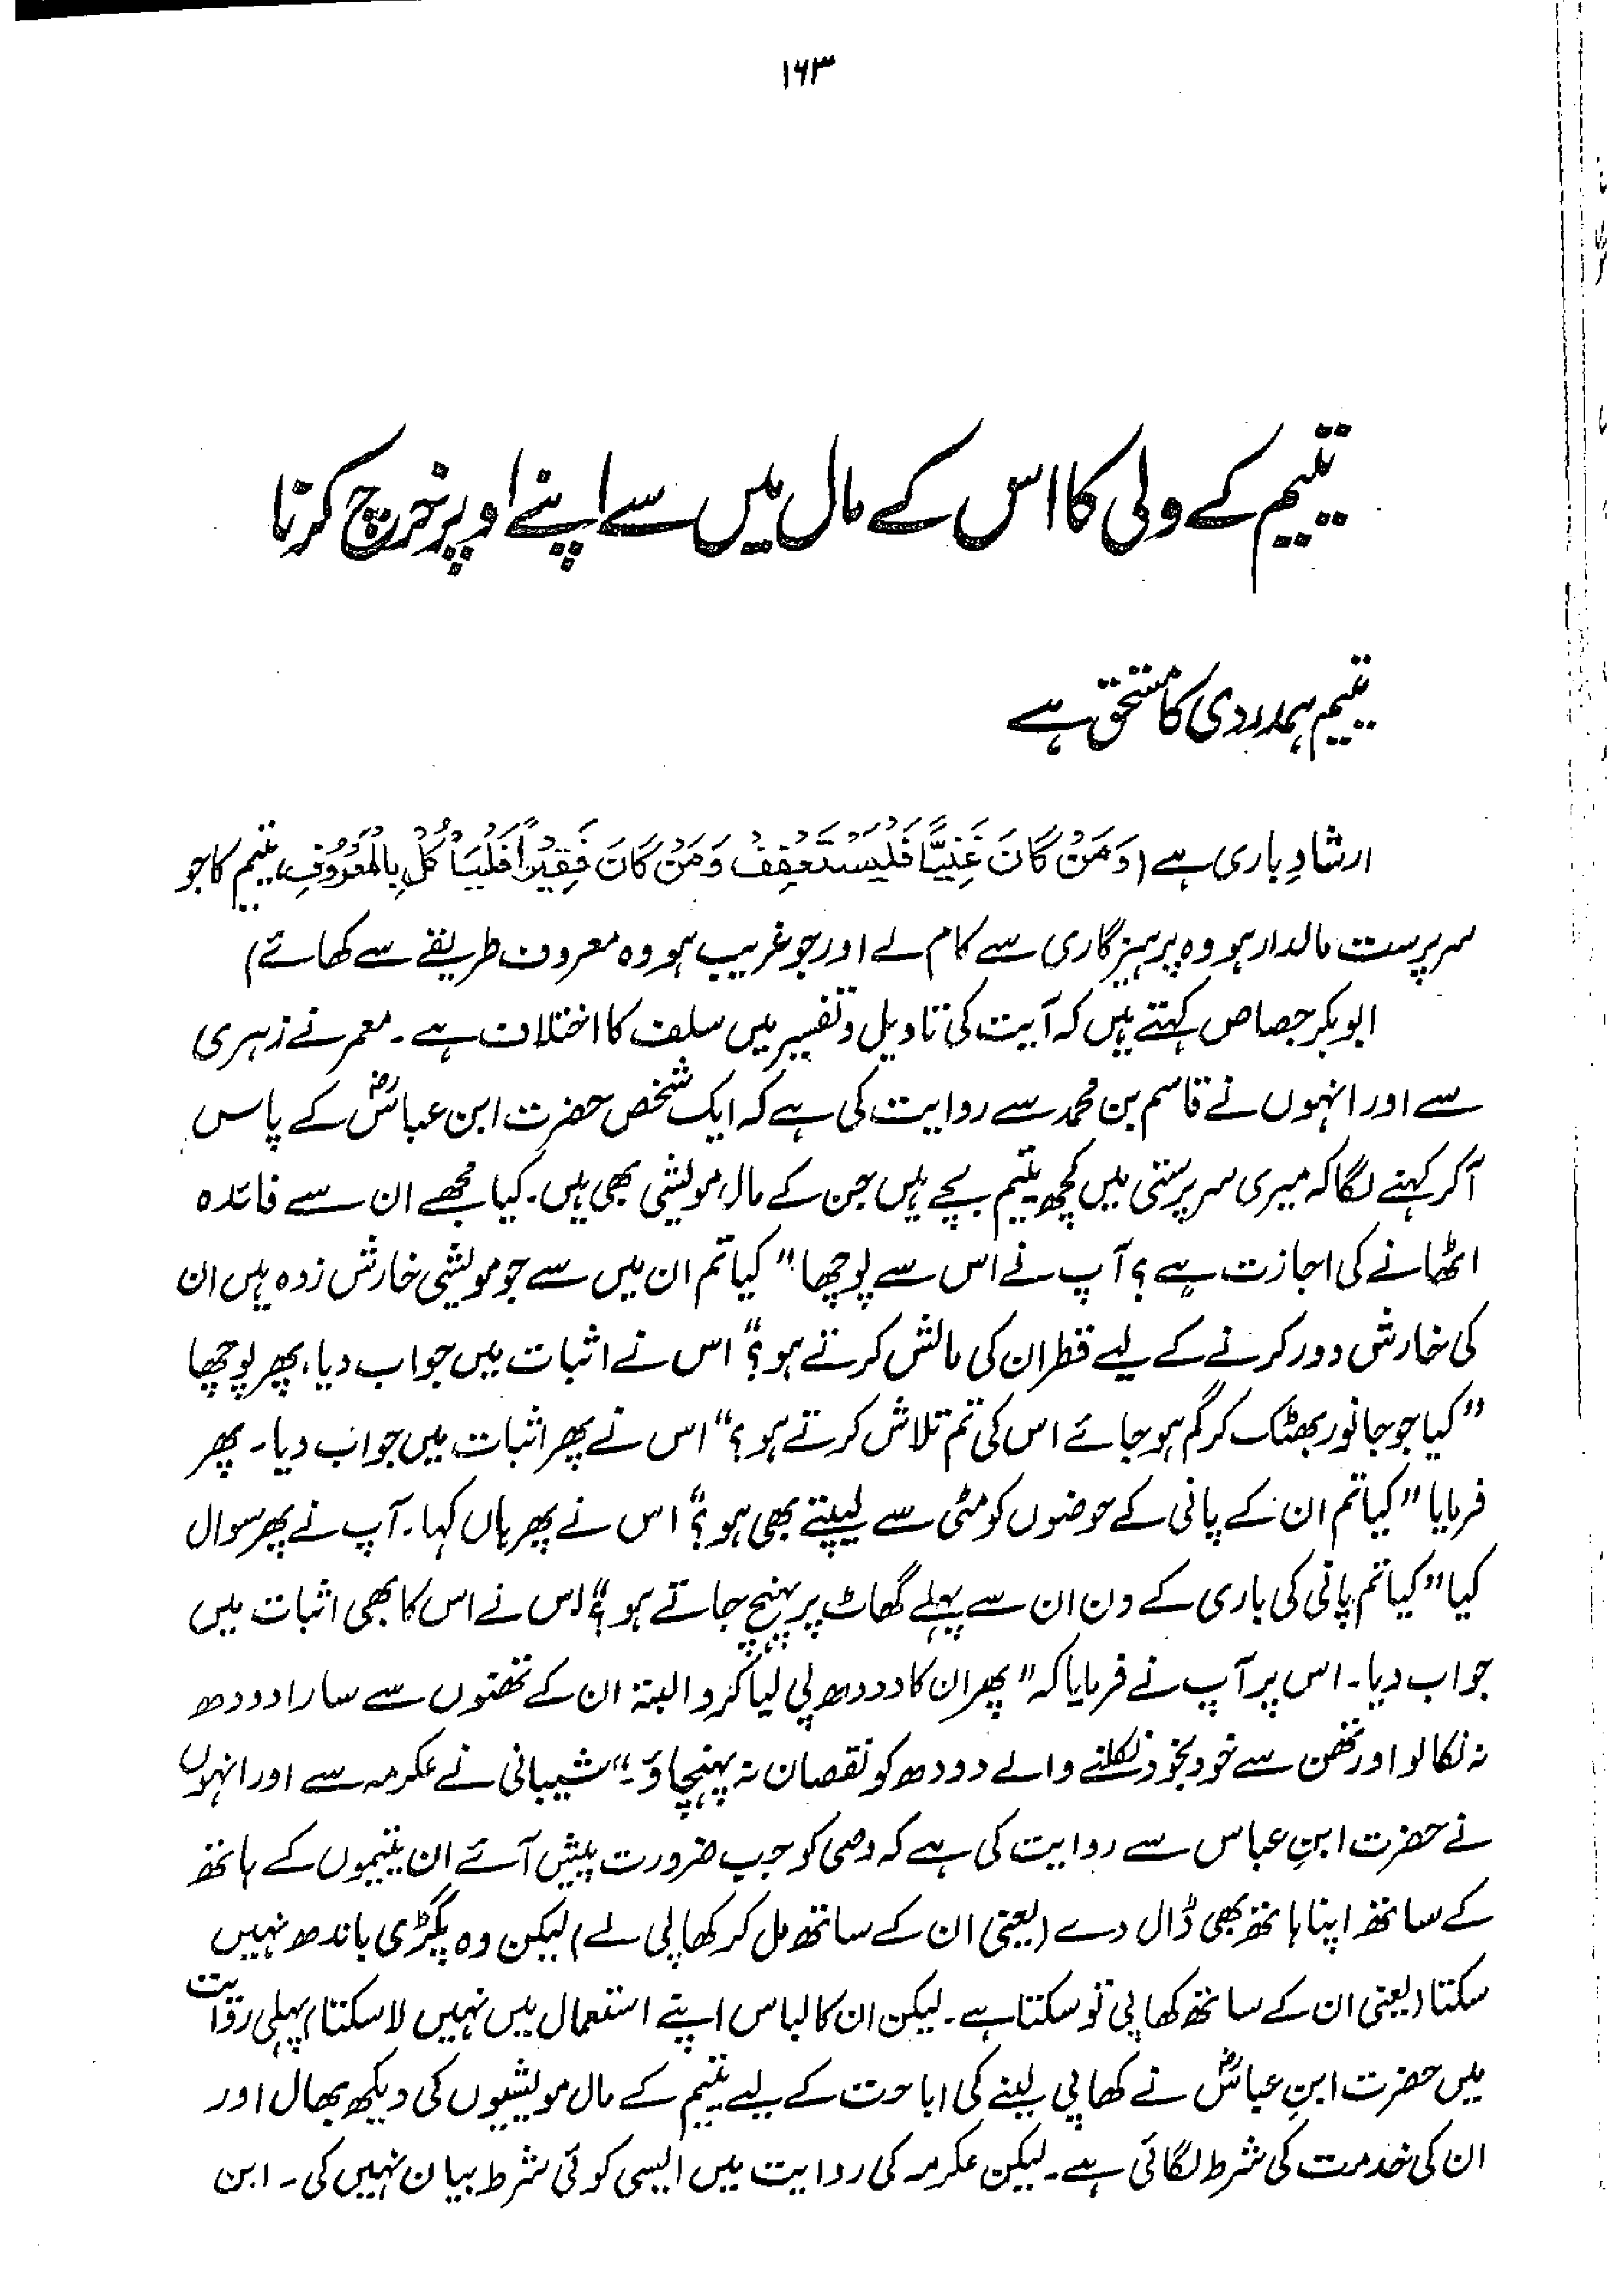 ۱۶۳
یتیم کے ولی کا اس کے مال میں سے اپنے اوپر خرچ کرنا
یتیم ہمدردی کا مستحق ہے
ارشادِ باری ہے (وَمَنْ كَانَ غَنِيًّا فَلْيَسْتَعْفِفْ وَمَنْ كَانَ فَقِيْرًا فَلْيَأْكُلْ بِالْمَعْرُوْفِ، یتیم کا جو
سرپرست مالدار ہو وہ پرہیزگاری سے کام لے اور جو غریب ہو وہ معروف طریقے سے کھائے)
ابوبکر جصاص کہتے ہیں کہ آیت کی تاویل وتفسیر میں سلف کا اختلاف ہے۔ معمر نے زہری
سے اور انہوں نے قاسم بن محمد سے روایت کی ہے کہ ایک شخص حضرت ابن عباسؓ کے پاس
آکر کہنے لگا کہ میری سرپرستی میں کچھ یتیم بچے ہیں جن کے مال مویشی بھی ہیں۔ کیا مجھے ان سے فائدہ
اٹھانے کی اجازت ہے؟ آپ نے اس سے پوچھا" کیا تم ان میں سے جو مویشی خارش زدہ ہیں ان
کی خارش دور کرنے کے لیے قطران کی مالش کرتے ہو؟" اس نے اثبات میں جواب دیا، پھر پوچھا
"کیا جو جانور بھٹک کر گم ہو جائے اس کی تم تلاش کرتے ہو؟" اس نے پھر اثبات میں جواب دیا۔ پھر
فرمایا "کیا تم ان کے پانی کے حوضوں کو مٹی سے لیپتے بھی ہو؟" اس نے پھر ہاں کہا۔ آپ نے پھر سوال
کیا "کیا تم پانی کی باری کے دن ان سے پہلے گھاٹ پر پہنچ جاتے ہو؟" اس نے اس کا بھی اثبات میں
جواب دیا۔ اس پر آپ نے فرمایا کہ "پھر ان کا دودھ پی لیا کرو البتہ ان کے تھنوں سے سارا دودھ
نہ نکالو اور تھن سے خودبخود نکلنے والے دودھ کو نقصان نہ پہنچاؤ۔" شیبانی نے عکرمہ سے اور انہوں
نے حضرت ابنِ عباس سے روایت کی ہے کہ وصی کو جب ضرورت پیش آئے ان یتیموں کے ہاتھ
کے ساتھ اپنا ہاتھ بھی ڈال دے (یعنی ان کے ساتھ مل کر کھا پی لے) لیکن وہ پگڑی باندھ نہیں
سکتا (یعنی ان کے ساتھ کھا پی تو سکتا ہے۔ لیکن ان کا لباس اپنے استعمال میں نہیں لا سکتا) پہلی روایت
میں حضرت ابنِ عباسؓ نے کھا پی لینے کی اباحت کے لیے یتیم کے مال مویشیوں کی دیکھ بھال اور
ان کی خدمت کی شرط لگائی ہے۔ لیکن عکرمہ کی روایت میں ایسی کوئی شرط بیان نہیں کی۔ ابن